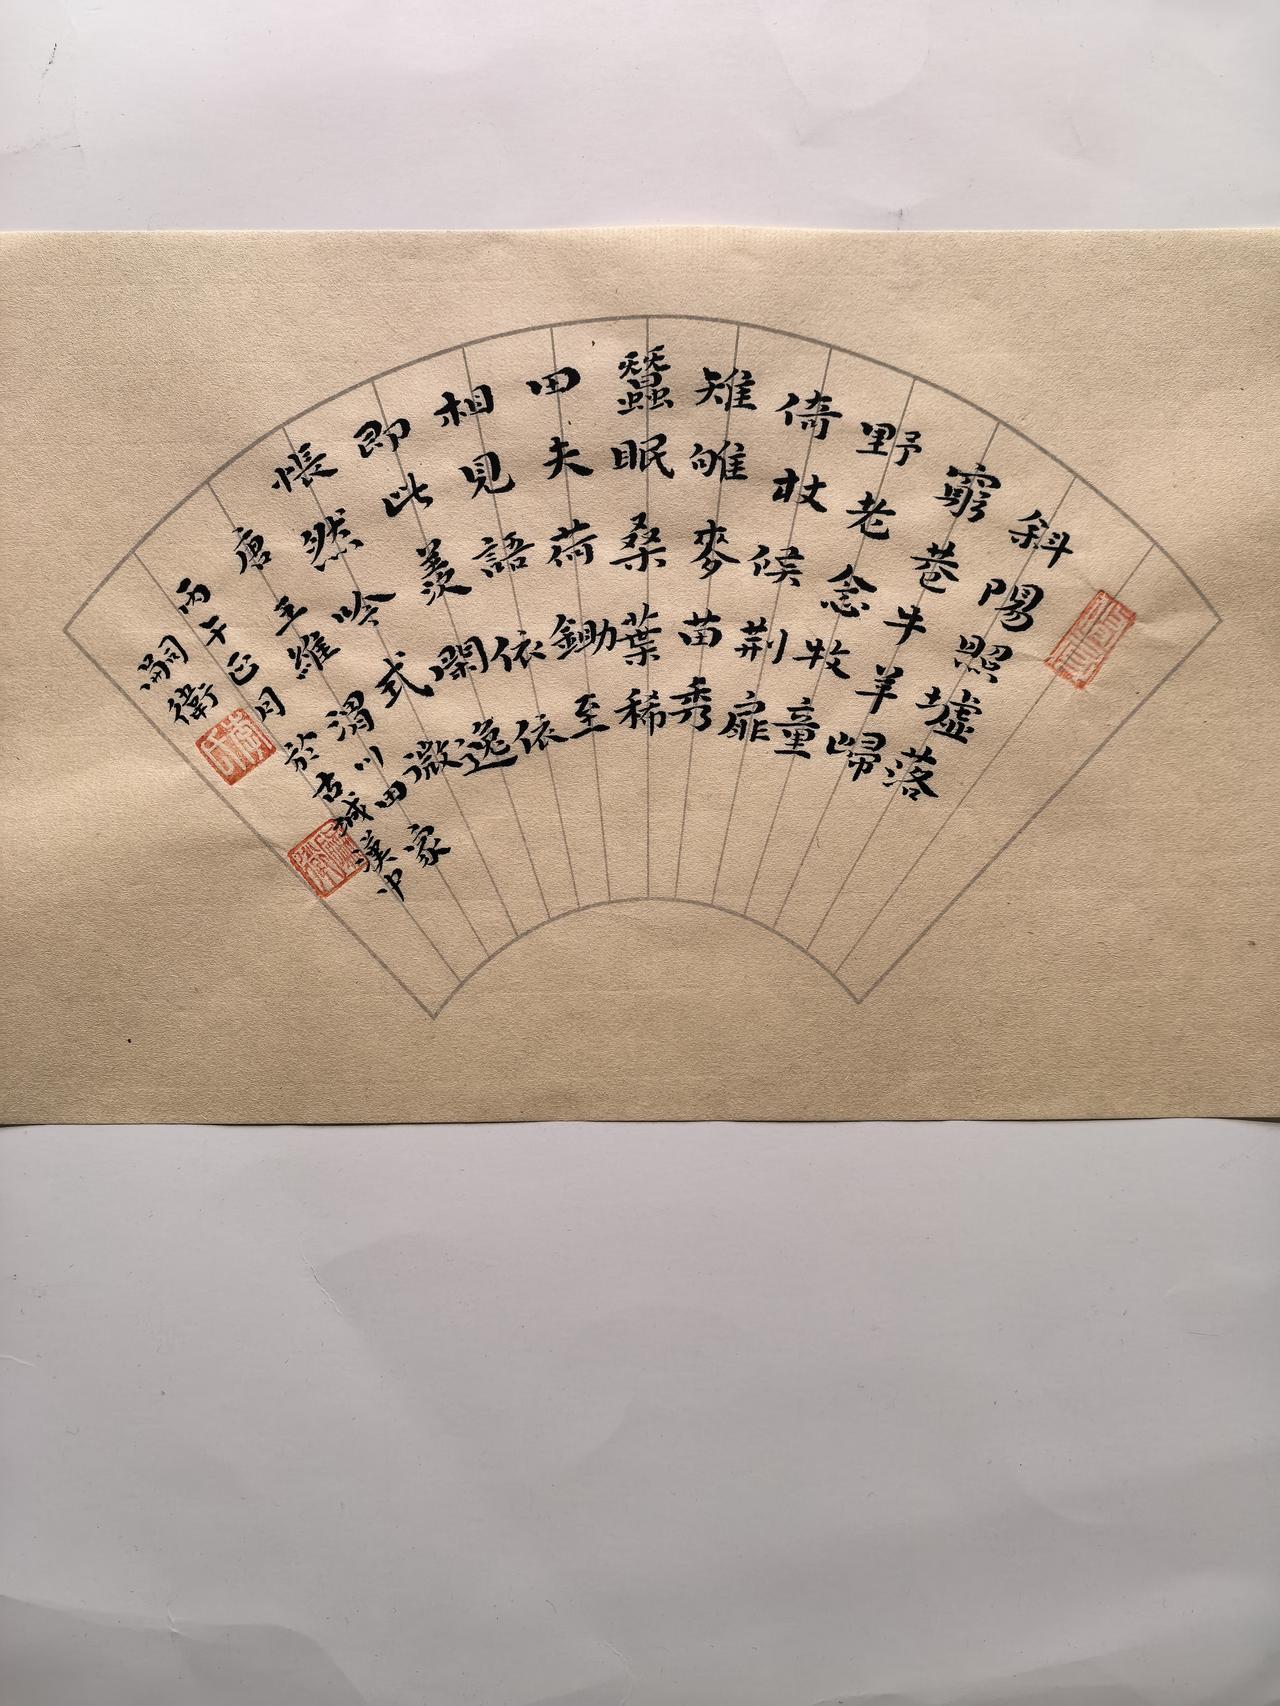 斜陽照墟落
窮巷牛羊歸
野老念牧童
倚杖候荆扉
雉雊麥苗秀
蠶眠桑葉稀
田夫荷鋤至
相見語依依
即此羨閑逸
悵然吟式微
唐王維渭川田家
丙午正月於古城漢中
嗣衛